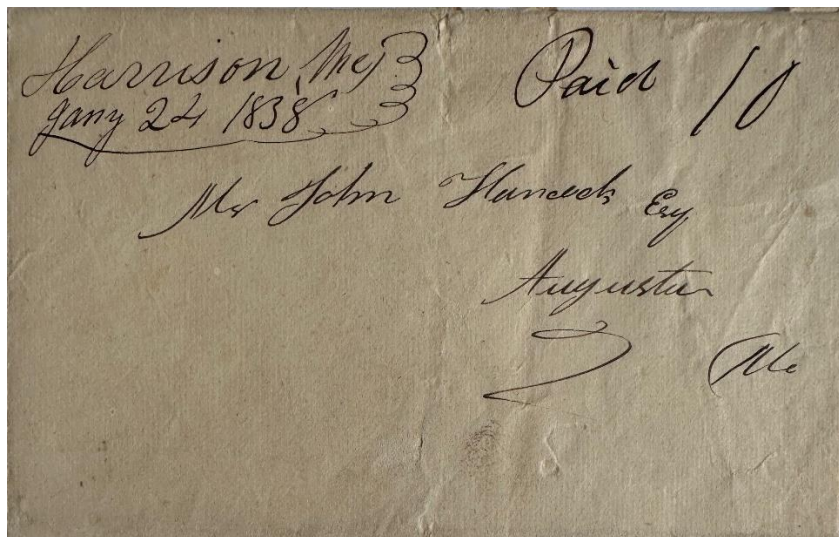 Harrison Me}
Jany 24 1838
Paid 10
Mr John Hancock Esq
Augusta
Me